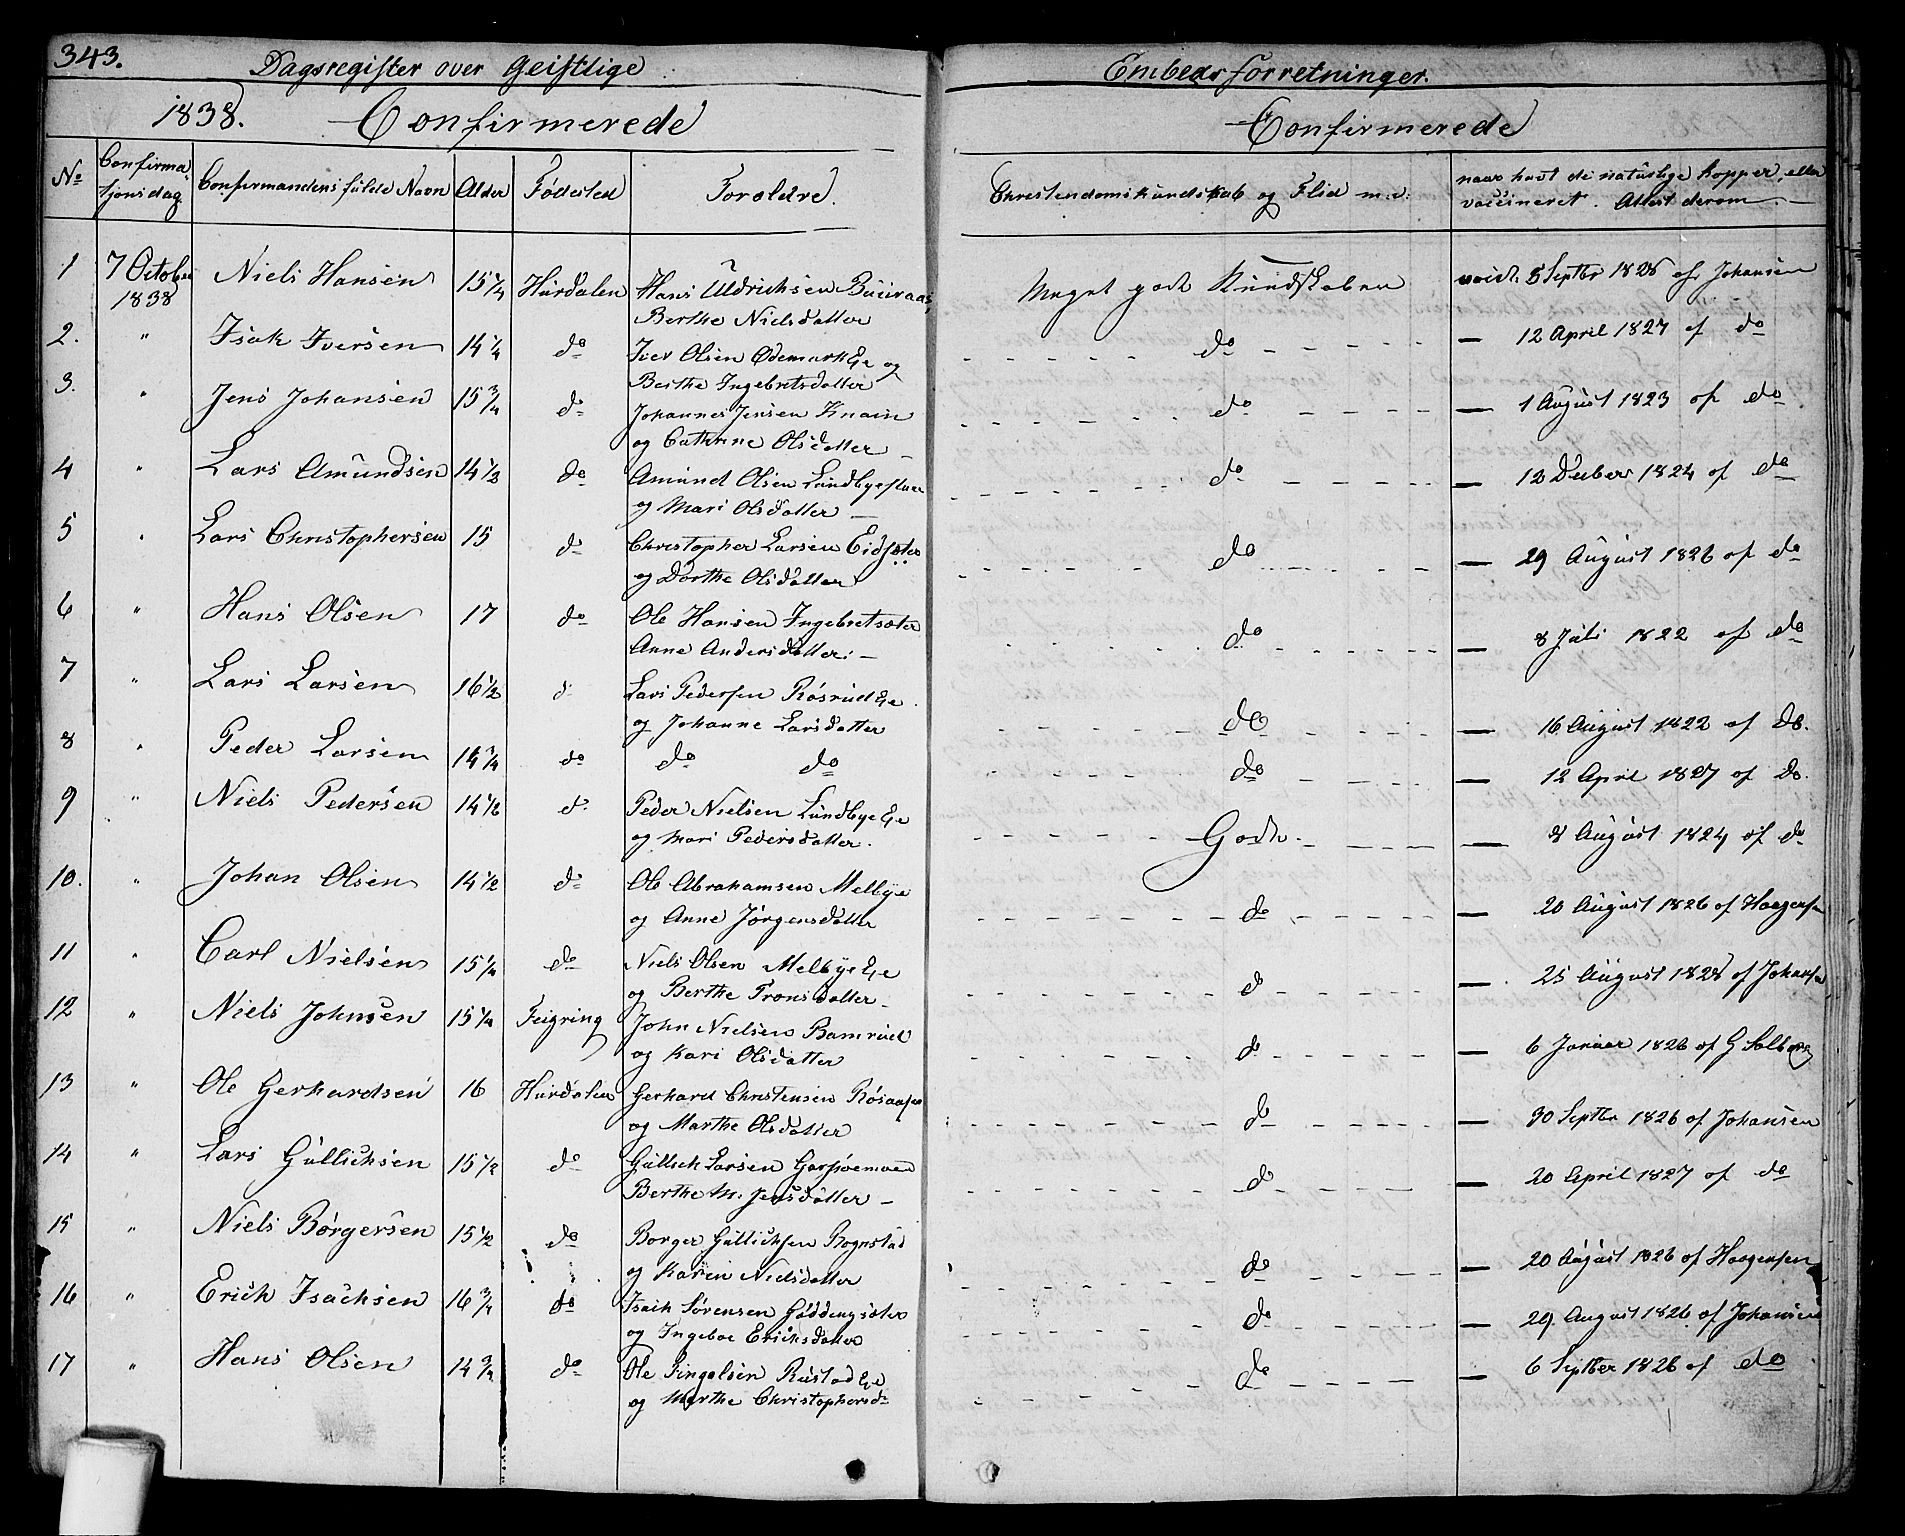 343.
Dagsregister over Geistlige Embedsforretninger.
1838. Confirmerede Confirmerede
No Confirmationsdag Confirmandens fulde Navn Alder Födested Foroldre. Christendomskundskab og Flid m.v. naar havt de naturlige kopper, eller vaccineret. Attest derom
1 7 October 1838 Niels Hansen 15 1/4 Hurdalen Hans Uldrichsen
Berthe Nielsdatter Meget gode Kundskaber 5 Septbr 1828 af Johansen
2. " Isak Iversen 14 1/4 do Iver Olsen Ödemark Eie og
Berthe Ingebretsdatter do 12 April 1827 af do
3. " Jens Johansen 15 3/4 do Johannes Jensen Knain
og Cathrine Olsdatter do 1 August 1823 af do
4 " Lars Amundsen 14 1/2 do Amund Olsen
og Mari Olsdatter do 12 Decber 1824 af do
5 " Lars Christophersen 15 do Christopher Larsen Eidsæter
og Dorthe Olsdatter do 29 August 1826 af do
6 " Hans Olsen 17 do Ole Hansen Ingebretsæter
Anne Andersdatter do 8 Juli 1822 af do
7 " Lars Larsen 16 1/2 do Lars Pedersen Rösrud Eie
og Johanne Larsdatter do 16 August 1822 af do.
8 " Peder Larsen 14 3/4 do do do do 12 April 1827 af do.
9 " Niels Pedersen 14 1/2 do Peder Nielsen Lundbye Eie
og Mari Pedersdatter. Gode. 8 August 1824 af do
10. " Johan Olsen 14 1/2 do Ole Abrahamsen Melbye
og Anne Jörgensdatter do 20 August 1826 af Haagensen
11 " Carl Nielsen 15 1/4 do Niels Olsen Melbye Eie
og Berthe Tronsdatter do 25 August 1828 af Johansen
12 " Niels Johnsen 15 1/4 Feigring John Nielsen Bamrud
og Kari Olsdatter do 6 Januar 1826 af G Solberg
13 " Ole Gerhardsen 16 Hurdalen Gerhard Christensen
og Marthe Olsdatter do 30 Septbr 1826 af Johansen
14 " Lars Gullichsen 15 1/2 do Gullich Larsen
Berthe M. Jensdatter do 20 April 1827 af do
15 " Niels Börgersen 15 1/2 do Borger Gullichsen Rognstad
og Karen Nielsdatter do 20 August 1826 af Haagensen
16 " Erich Isachsen 16 3/4 do Isach Sörensen
og Ingebor Ericksdatter do 29 August 1826 af Johansen
17 " Hans Olsen 14 3/4 do Ole Rustad Eie
og Marthe Christophersd. do 6 Septber 1826 af do